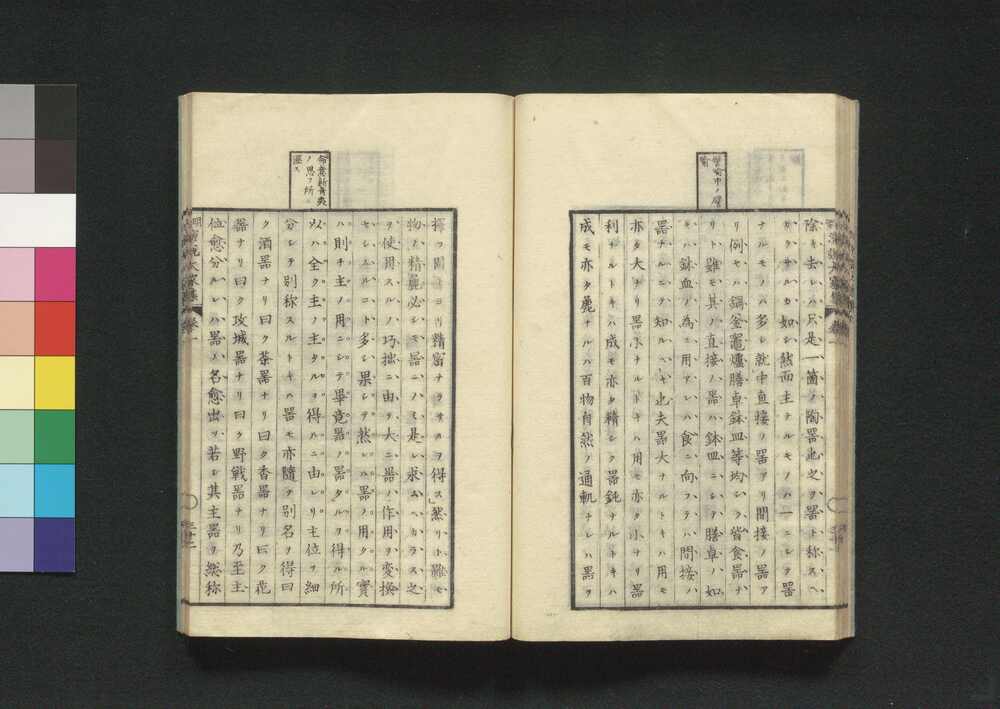 譬喩中ノ譬
喩
除キ去レハ只是一箇ノ陶器也之ヲ器ト称スヘ
カラサルカ如シ然而主ナルモノハ一ニシテ器
ナルモノハ多シ就中直接ノ器アリ間接ノ器ア
リ例セハ鍋釜竈爐膳卓鉢皿等均シク皆食器ナ
リト雖モ其ノ直接ノ器ハ鉢皿ニシテ膳卓ノ如
キハ鉢皿ノ為ニ用アレハ食ニ向フテハ間接ノ
器ナルヿヲ知ルヘキ也夫器大ナルトキハ用モ
亦タ大ナリ器小ナルトキハ用モ亦タ小ナリ器
利ナルトキハ成モ亦タ精シク器鈍ナルトキハ
成モ亦タ麁ナルハ百物自然ノ通軌ナレハ器ヲ
命意新奇爽
ノ思フ所ニ
アラス
択フ固ヨリ精密ナラサルヲ得ス」然リト雖モ
物ノ精麁必シモ器ニノミ是レ求ムヘカラス之
ヲ使用スルノ巧拙ニ由リ大ニ器ノ作用ヲ変換
セシムルコト多シ果シテ然レハ器ノ用タル實
ハ則チ主ノ用ニシテ畢竟器ノ器タルヲ得ル所
以ハ全ク主ノ主タルヲ得ルニ由レリ主位ヲ細
分シテ別称スルトキハ器モ亦隨テ別名ヲ得曰
ク酒器ナリ曰ク茶器ナリ曰ク香器ナリ曰ク花
器ナリ曰ク攻城器ナリ曰ク野戰器ナリ乃至主
位愈分ルレハ器ノ名愈出ツ若シ其主器ヲ総称
卷一